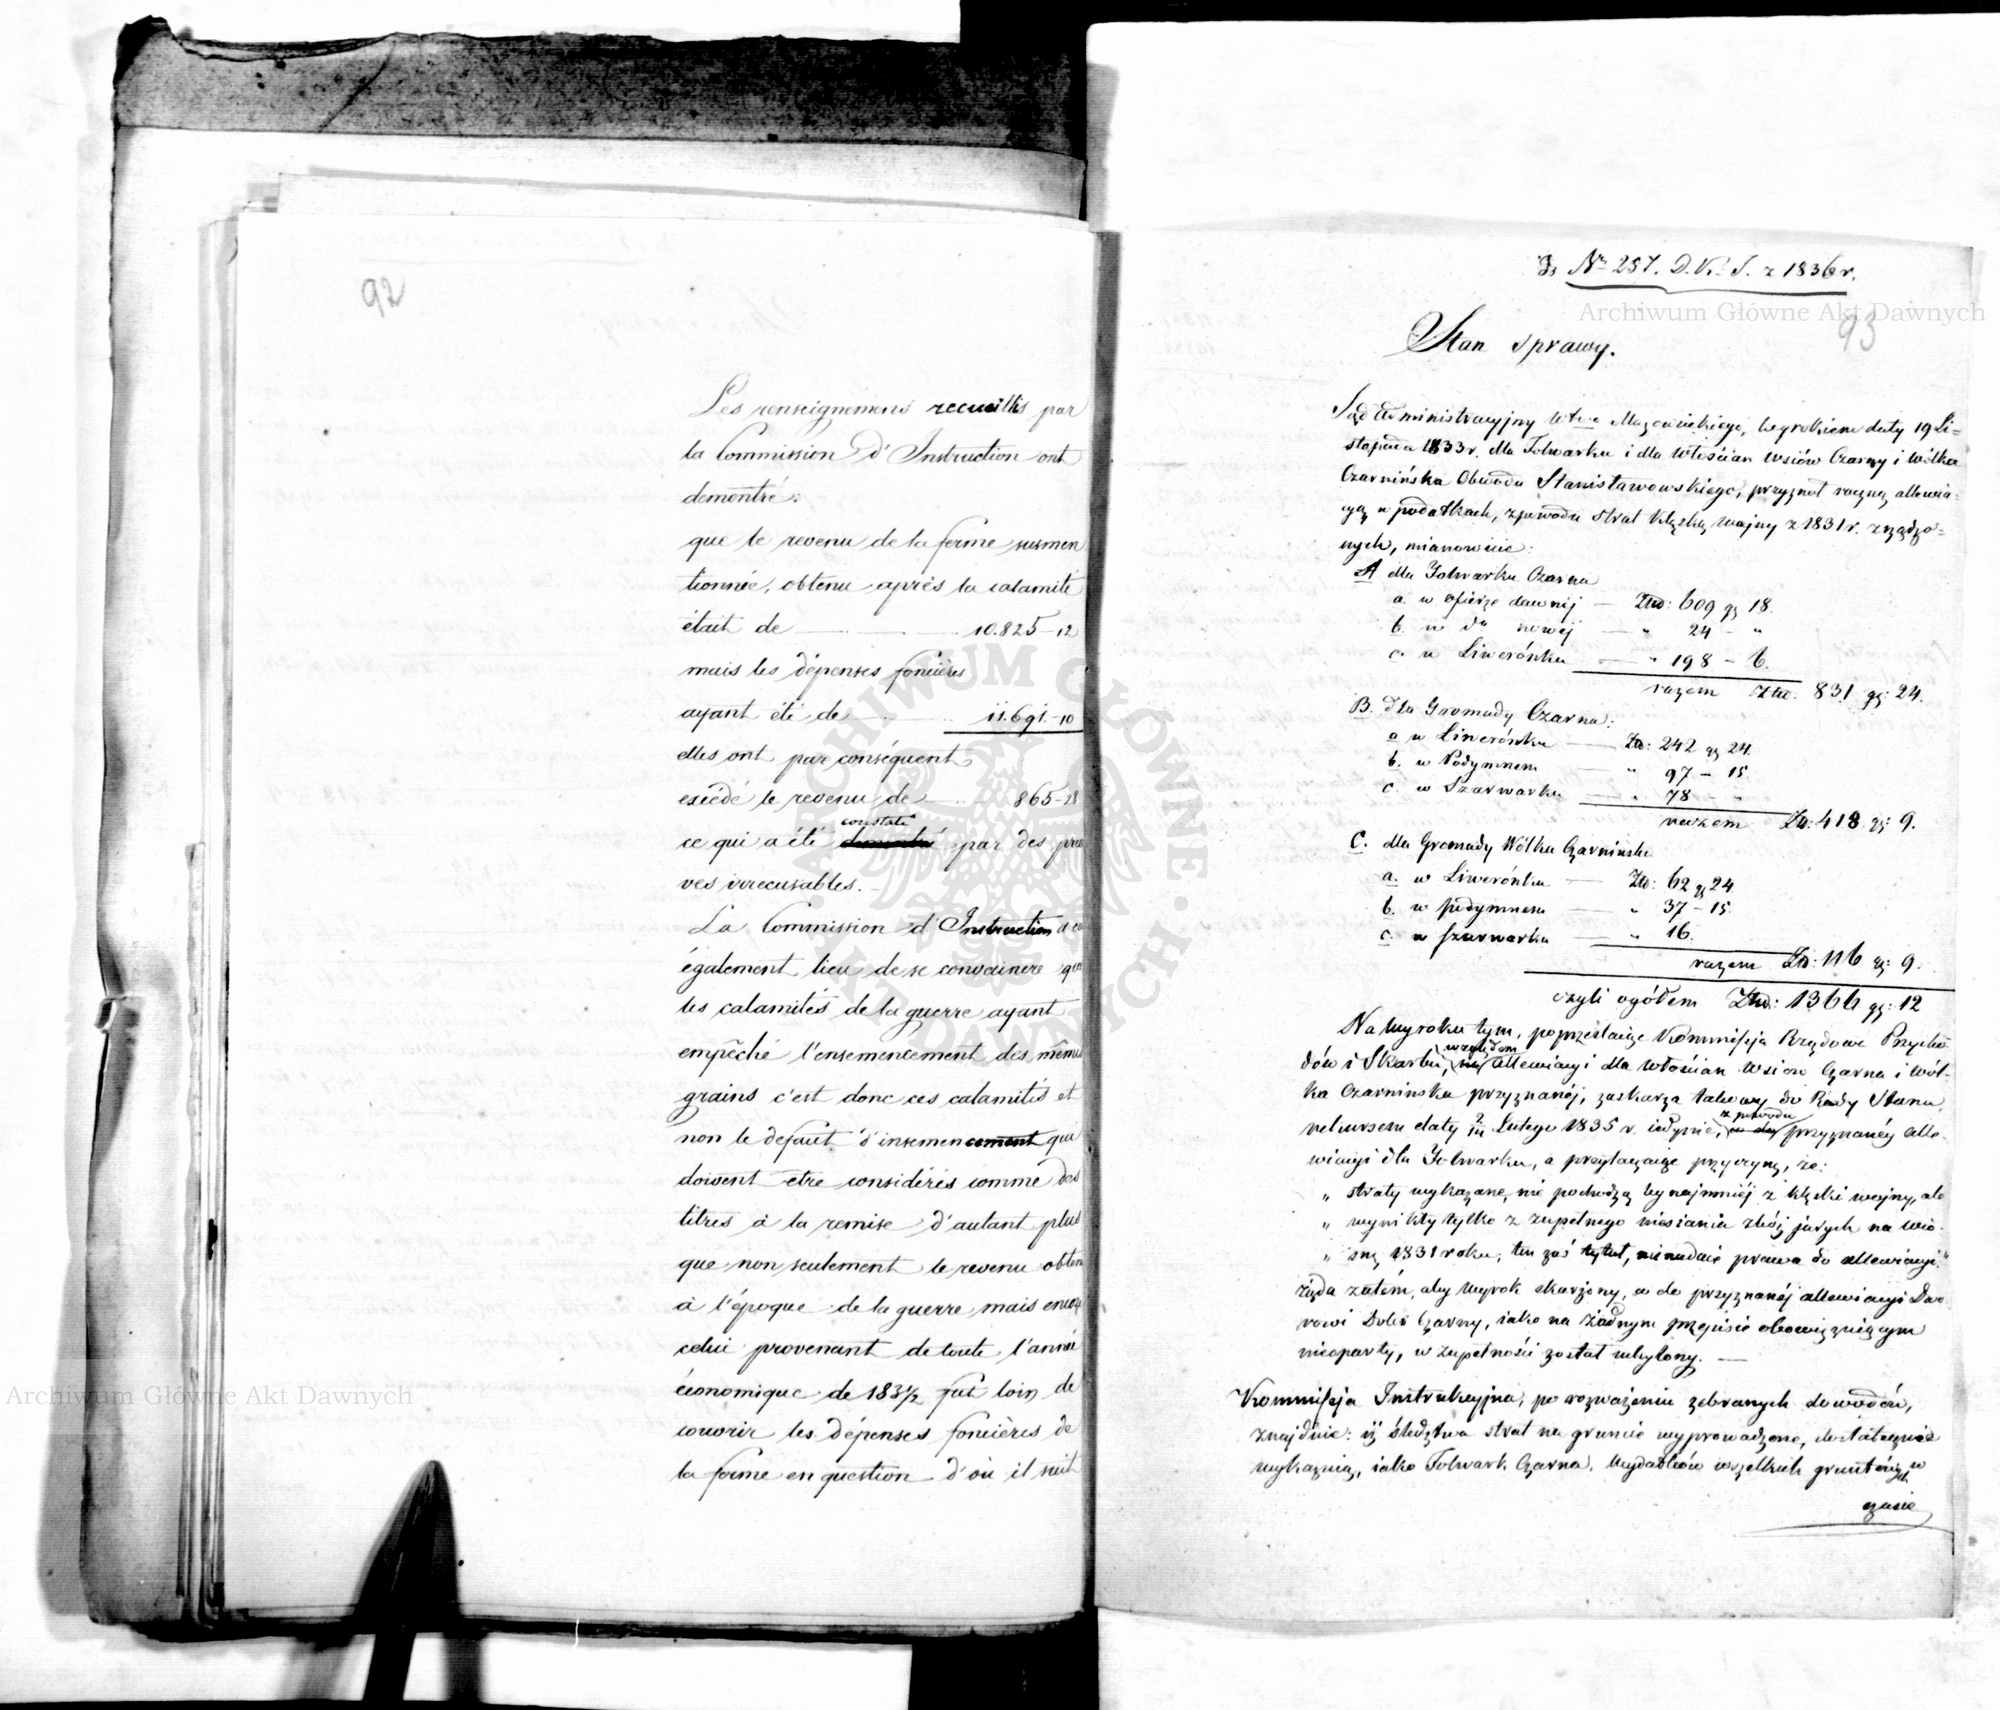 92
Les renseignemens recueillis par
la Commission d'Instruction ont
demontré:
que le revenu de la ferme susmen
tionnée, obtenu après la calamité
était de 10.825-12
mais les dépenses foncières
ayant été de 11.691.-10
elles ont par conséquent
excédé le revenu de 865-28
constaté
ce qui a été par des preu
ves irrecusables.
La Commission d'Instruction a eu
également lieu de se convaincre que
les calamités de la guerre ayant
empêché l'ensemencement des mêmes
grains c'est donc ces calamités et
non le defaut d'insemencement qui
doivent etre considérés comme des
titres à la remise d'autant plus
que non seulement le revenu obtenu
à l'époque de la guerre mais encore
celui provenant de toute l'année
économique de 183½ fut loin de
couvrir les dépenses foncières de
la ferme en question d'où il suit
№ 257. D.K.S. z 1836 r.
93
Stan sprawy.
Sąd Administracyjny Wtwa Mazowieckiego, wyrokiem daty 19 Li=
stopada 1833 r. dla Folwarku i dla Włościan Wsiów Czarny i Wólka
Czarnińska Obwodu Stanisławowskiego, przyznał roczną allewia=
cyą w podatkach, z powodu strat klęską wojny z 1831 r. zrządzo=
nych, mianowicie:
A dla Folwarku Czarna
a. w ofierze dawnéj — Złp: 609 gr 18.
b. w do nowéj — " 24 - "
c. w Liwerónku — " 198 - 6.
razem Złp: 831 gr: 24.
B. dla Gromady Czarna:
a w Liwerónku — Zł: 242 gr 24.
b. w Podymnem " 97 - 15.
c. w Szarwarku " 78 - "
razem Zł: 418 gr: 9.
C. dla Gromady Wólka Czarnińska
a. w Liwerónku — Zł: 62 gr 24
b. w podymnem — " 37 - 15.
c. w szarwarku — " 16.
razem Zł: 116 gr: 9.
czyli ogółem Złp: 1366 gr: 12
Na wyroku tym, poprzestaiąc Kommissya Rządowa Przycho
względem
dów i Skarbu, allewiacyi dla włościan wsiów Czarna i Wól-
ka Czarnińska przyznanéj, zaskarża takowy do Rady Stanu,
z powodu
rekursem daty Lutego 1835 r. iedynie, przyznanéy alle-
wiacyi dla Folwarku, a przytaczaiąc przyczynę, że:
" straty wykazane, nie pochodzą bynajmniéj z klęski wojny, ale
" wynikły tylko z zupełnego niesiania zbóż jarych na wio-
" snę 1831 roku, ten zaś tytuł, nienadaie prawa do allewiacyi."
żąda zatém, aby wyrok skarżony, co do przyznanéj allewiacyi Dwo
rowi Dóbr Czarny, iako na żadnym przepisie obowiązuiącym
nieoparty, w zupełności został uchylony. —
Kommissya Instrukcyjna, po rozważeniu zebranych dowodów,
znajduie: iż śledztwa strat na gruncie wyprowadzone, dostatecznie
wykazuią, iako Folwark Czarna, wydatków wszelkich gruntowych w
czasie